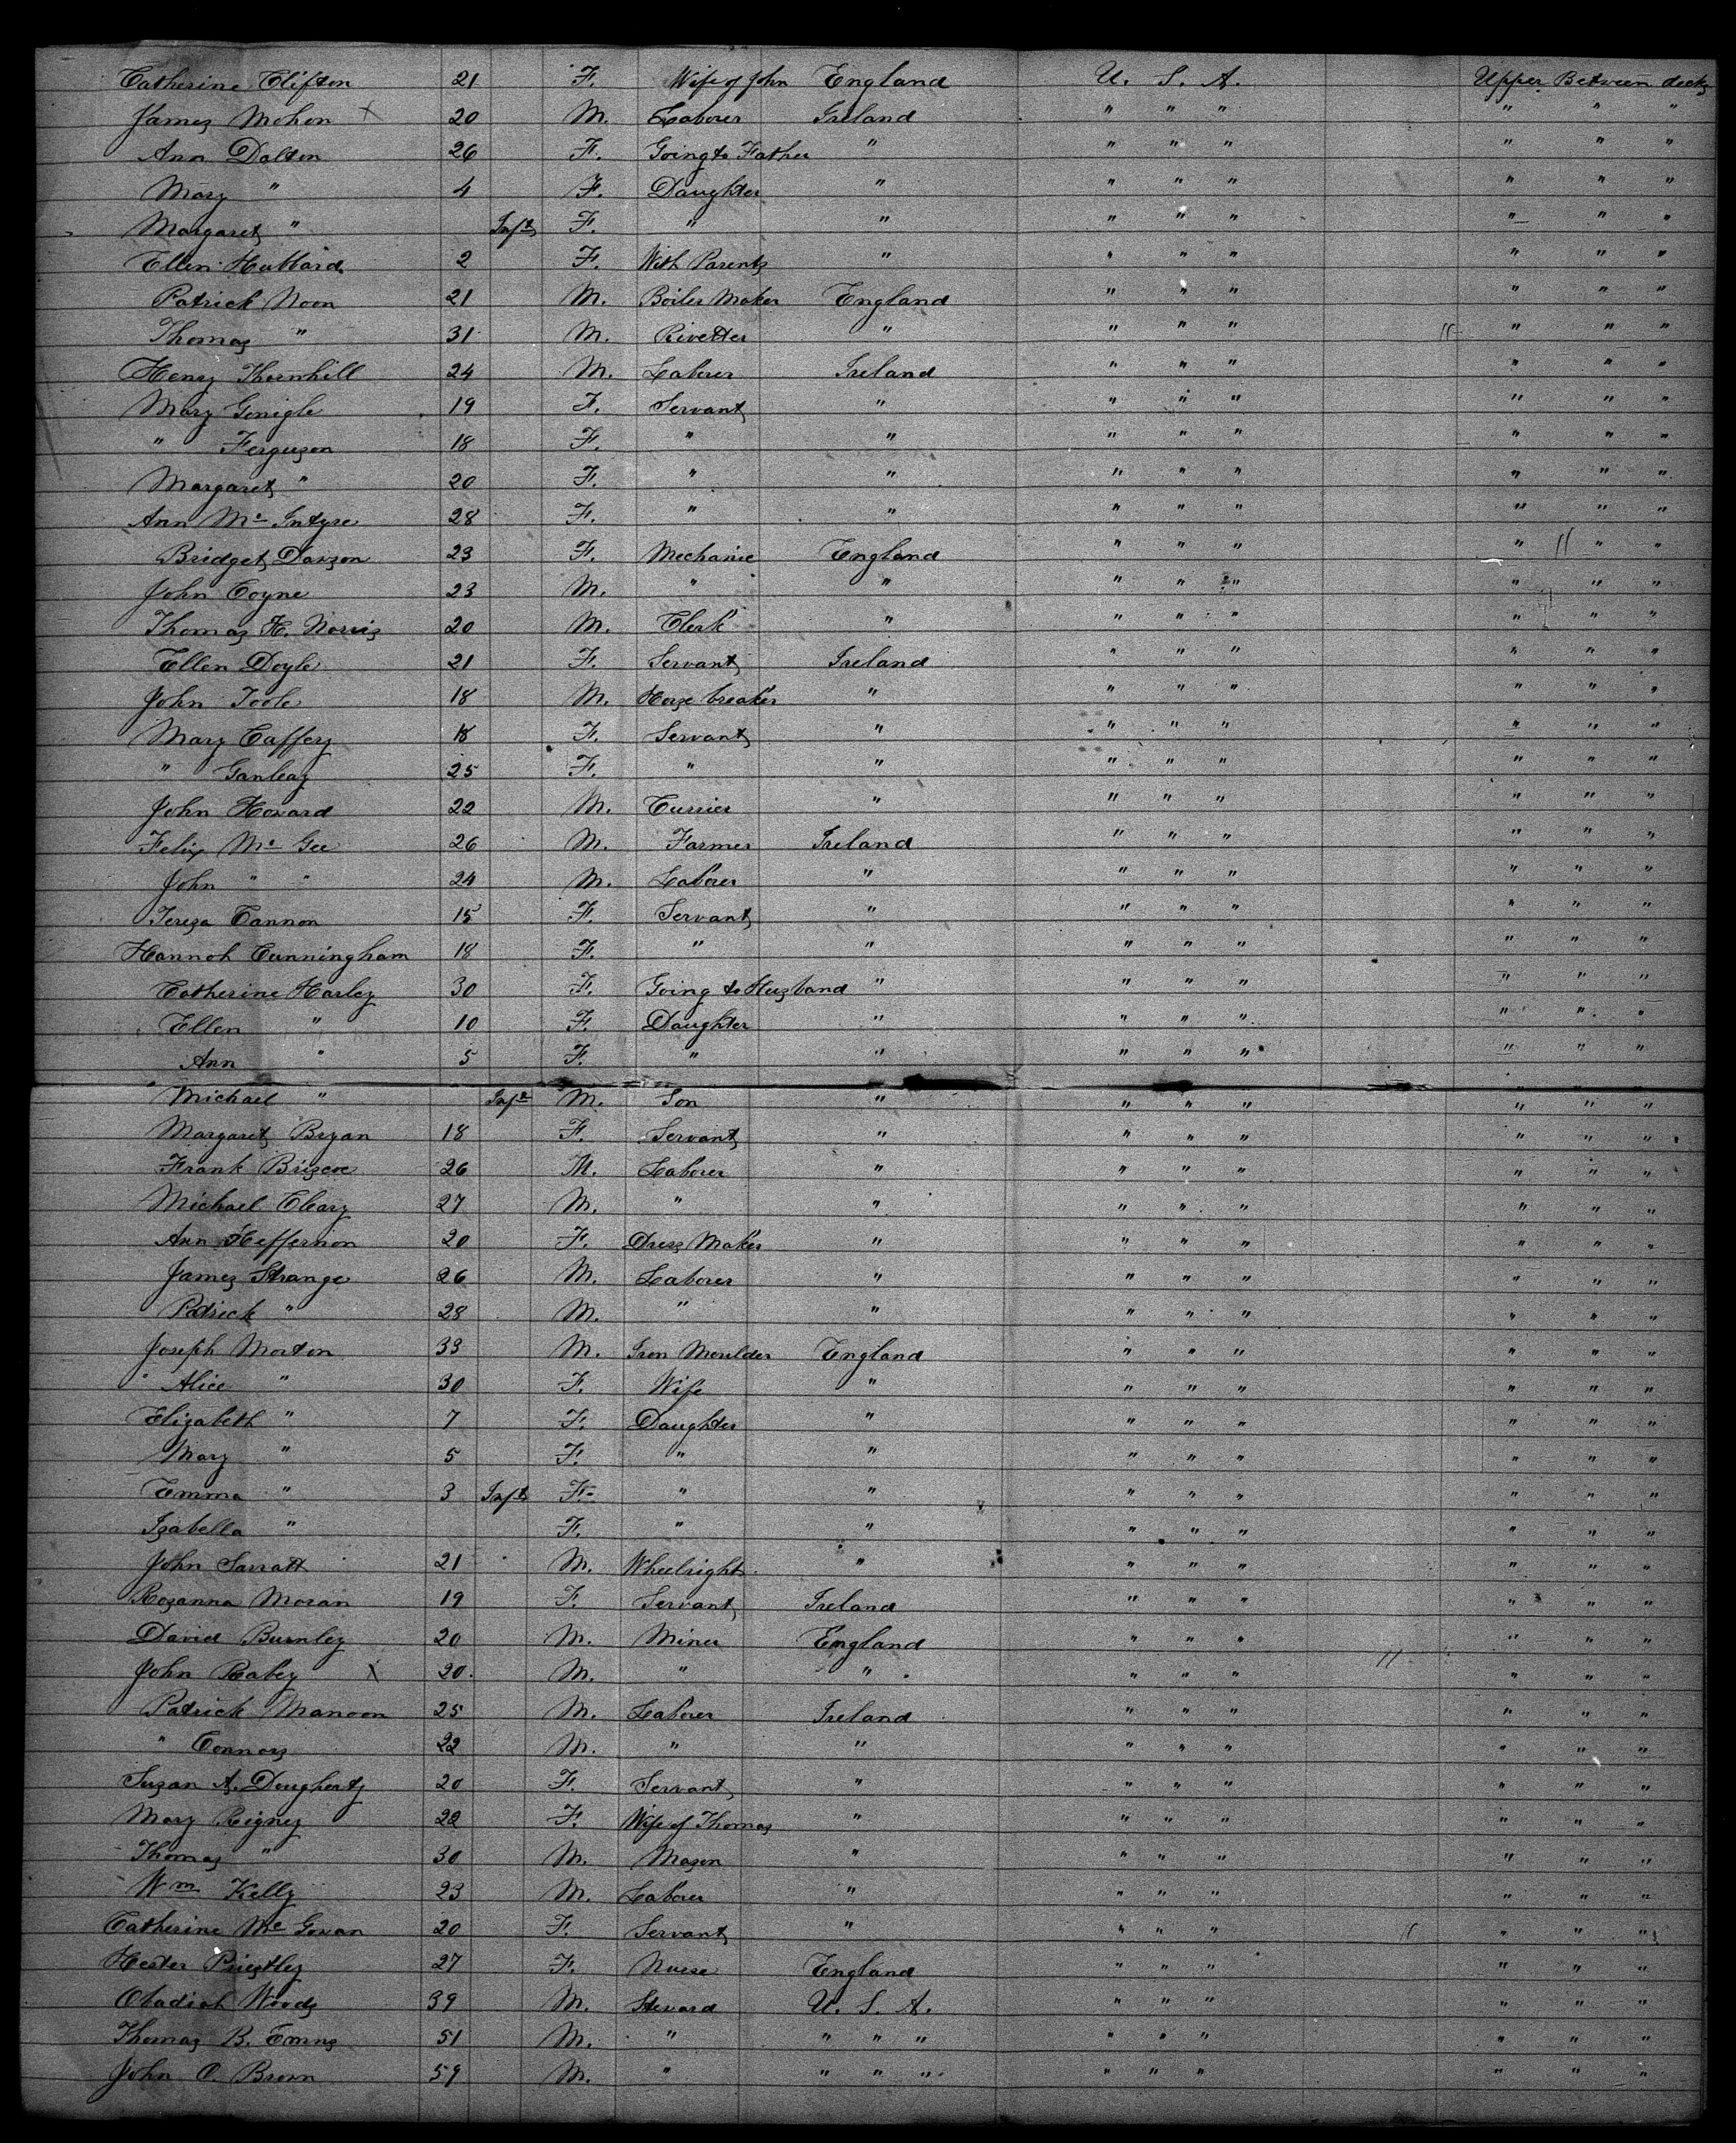 Catherine Clifton 21 F. Wife of John England U. S. A. Upper Between decks
James Mohon X 20 M. Laborer Ireland " " " " " "
Ann Dalton 26 F. Going to Father " " " " " " "
Mary " 4 F. Daughter " " " " " " "
Margaret " Inft F. " " " " " " " "
Ellen Hubbard 2 F. With Parents " " " " " " "
Patrick Noon 21 M. Boiler Maker England " " " " " "
Thomas " 31 M. Rivetter " " " " // " " "
Henry Thornhill 24 M. Laborer Ireland " " " " " "
Mary Gonigle 19 F. Servant " " " " " " "
" Ferguson 18 F. " " " " " " " "
Margaret " 20 F. " " " " " " " "
Ann Mc Intyre 28 F. " " " " " " " "
Bridget Dawson 23 F. Mechanic England " " " " // " "
John Coyne 23 M. " " " " " " " "
Thomas H. Norris 20 M. Clerk " " " " " " "
Ellen Doyle 21 F. Servant Ireland " " " " " "
John Toole 18 M. Horse breaker " " " " " " "
Mary Caffery 18 F. Servant " " " " " " "
" Ganleay 25 F. " " " " " " " "
John Howard 22 M. Currier " " " " " " "
Felix Mc Gee 26 M. Farmer Ireland " " " " " "
John " " 24 M. Laborer " " " " " " "
Teresa Cannon 15 F. Servant " " " " " " "
Hannah Cunningham 18 F. " " " " " " " "
Catherine Harley 30 F. Going to Husband " " " " " " "
Ellen " 10 F. Daughter " " " " " " "
Ann " 5 F. " " " " " " " "
Michael " Inft M. Son " " " " " " "
Margaret Bryan 18 F. Servant " " " " " " "
Frank Briscoe 26 M. Laborer " " " " " " "
Michael Cleary 27 M. " " " " " " " "
Ann Heffernon 20 F. Dress Maker " " " " " " "
James Strange 26 M. Laborer " " " " " " "
Patrick " 28 M. " " " " " " " "
Joseph Morton 33 M. Iron Moulder England " " " " " "
" Alice " 30 F. Wife " " " " " " "
Elizabeth " 7 F. Daughter " " " " " " "
Mary " 5 F. " " " " " " " "
Emma " 3 Inft F. " " " " " " " "
Isabella " F. " " " " " " " "
John Sarratt 21 M. Wheelright " " " " " " "
Rosanna Moran 19 F. Servant Ireland " " " " " "
David Burnley 20 M. Miner England " " " " " "
John Rabey X 20 M. " " " " " // " " "
Patrick Manoon 25 M. Laborer Ireland " " " " " "
" Connors 22 M. " " " " " " " "
Susan A. Dougherty 20 F. Servant " " " " " " "
Mary Rigney 22 F. Wife of Thomas " " " " " " "
Thomas " 30 M. Mason " " " " " " "
Wm Kelly 23 M. Laborer " " " " " " "
Catherine Mc Gowan 20 F. Servant " " " " // " " "
Hester Priestley 27 F. Nurse England " " " " " "
Obadiah Woods 39 M. Steward U. S. A. " " " " " "
Thomas B. Emms 51 M. " " " " " " " " " "
John O. Brown 59 M. " " " " " " " " " "